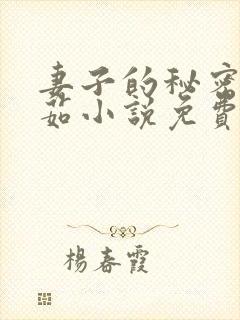 妻子的秘密
茹小說免費
楊春霞